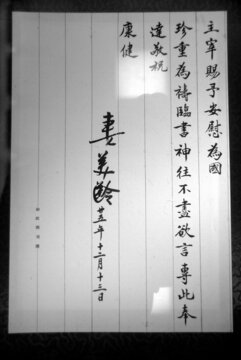 主宰賜予安慰為國
珍重為禱臨書神往不盡欲言專此奉
達敬祝
康健
美齡
廿五年十二月十三日